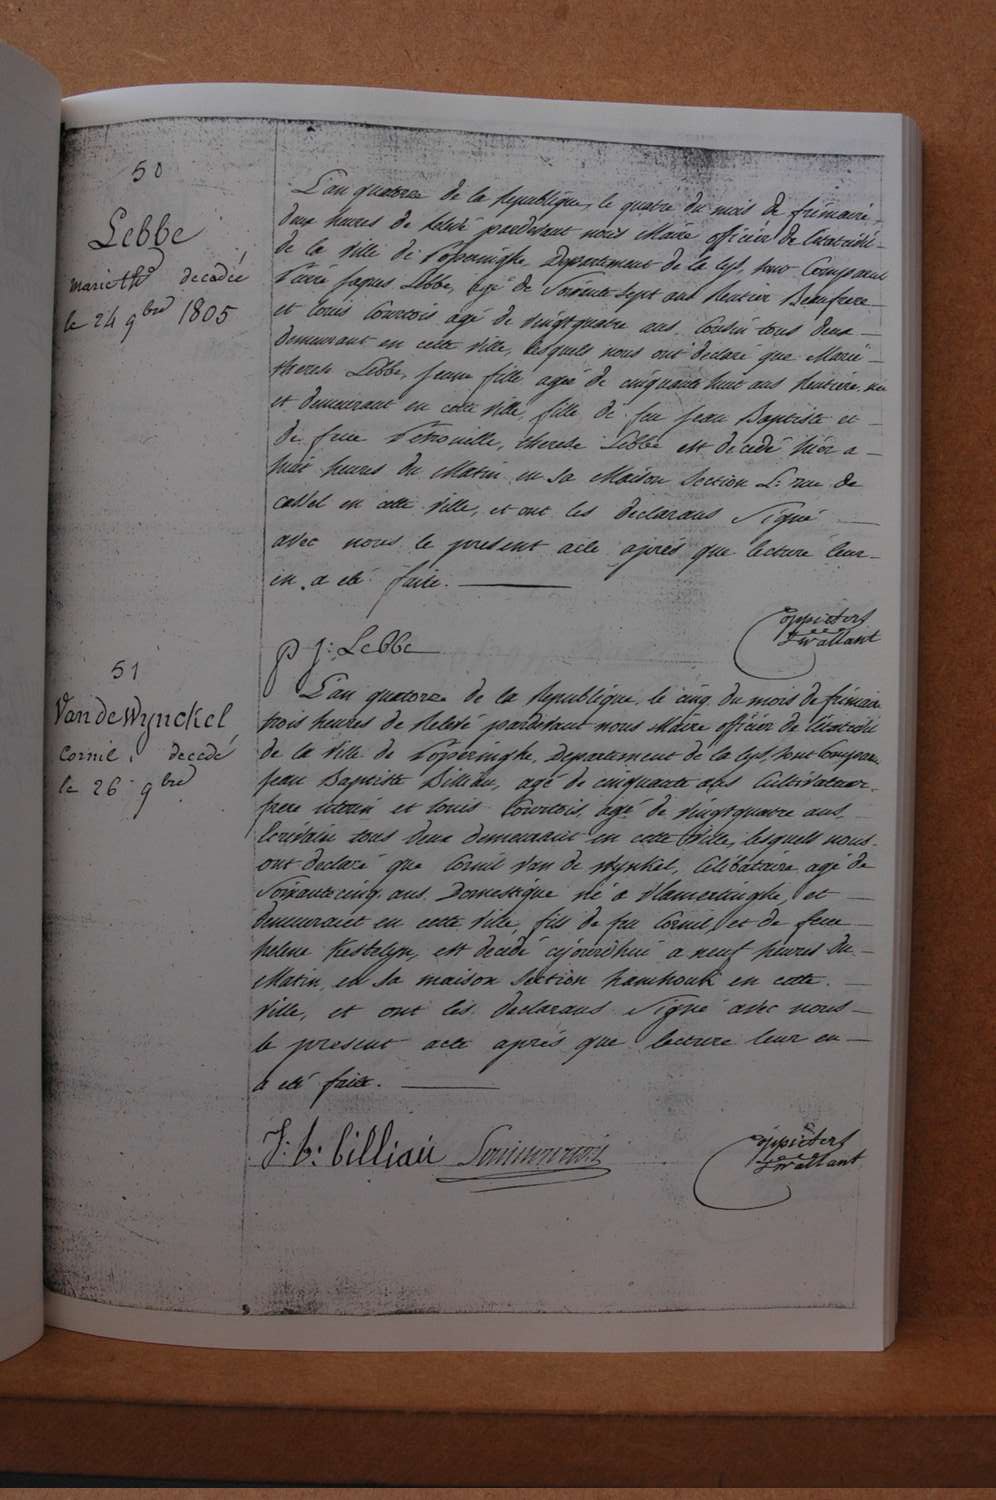 50
Lebbe
marie th.e decedée
le 24 9bre 1805
L'an quatorze de la Republique, le quatre du mois de frimaire
deux heures de relevé pardevant nous Maire officier de l'état civil
de la ville de Poperinghe, Departement de la Lys, sont Comparus
Pierre Jaques Lebbe, agé de Soixante sept ans Rentier Beaufrere
et Louis Courtois agé de vingtquatre ans, Cousin tous deux
demeurant en cette ville, lesquels nous ont declaré que Marie
therese Lebbe, jeune fille agée de cinquante huit ans Rentiere, née
et demeurant en cette ville, fille de feu Jean Baptiste et
de feue Petronille, therese Lebbe est decedé hier a
huit heures du Matin en sa Maison Section L: rue de
cassel en cette Ville, et ont les declarans Signé
avec nous le present acte après que lecture leur
en a eté faite.
p j: Lebbe
Coppieters
wallant
51
Van de Wynckel
Cornil, decedé
le 26 9bre
L'an quatorze de la Republique le cinq du mois de frimaire
trois heures de Relevé pardevant nous Maire officier de l'état civil
de la ville de Poperinghe, Departement de la Lys, sont comparus
Jean Baptiste Billiau, agé de cinquante ans Cultivateur,
frere uterin et Louis Courtois, agé de vingtquatre ans,
Ecrivain tous deux demeurant en cette Ville, lesquels nous
ont declaré que Cornil Van de Wynkel, Celibataire agé de
Soixante cinq ans Domestique né a Vlamertinghe, et
demeurant en cette Ville, fils de feu Cornil, et de feue
helene Kestelyn, est decedé cejourdhui a neuf heures du
Matin, en sa maison Section hamhouk en cette
Ville, et ont les declarans Signé avec nous
le present acte après que lecture leur en
a eté faite.
J: b: billiau
Coppieters
wallant